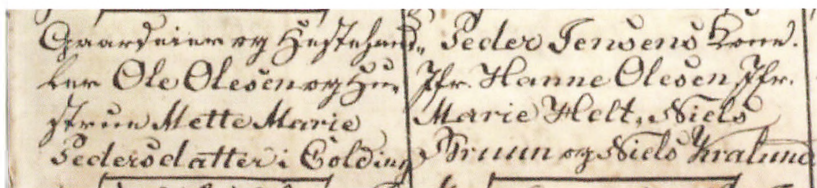 Gaardeier og Hestehand-
ler Ole Olesen og Hu-
strue Mette Marie
Pedersdatter i Colding
Peder Jensens Kone.
Jfr. Hanne Olesen Jfr.
Marie Helt, Niels
Bruun og Niels Kralund